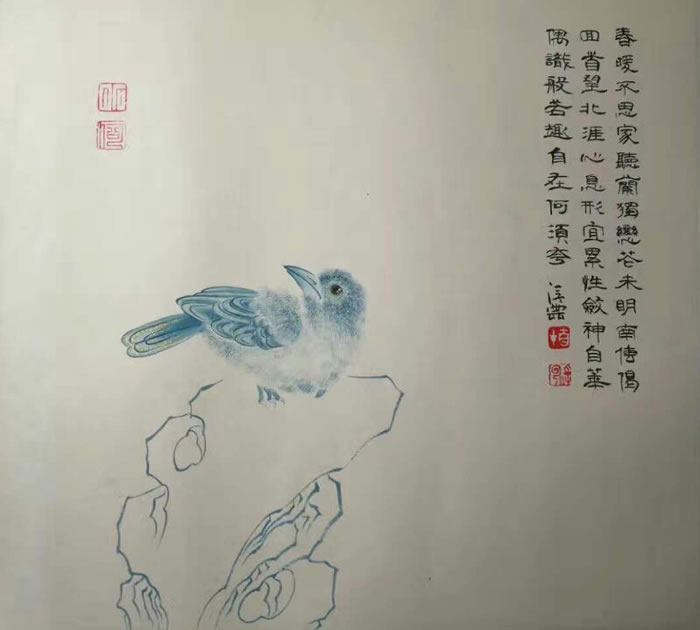 春暖不思家聽蘭獨戀花未明南传偈
回首望北涯心息形宜累性斂神自華
偶識般若趣自在何須夸